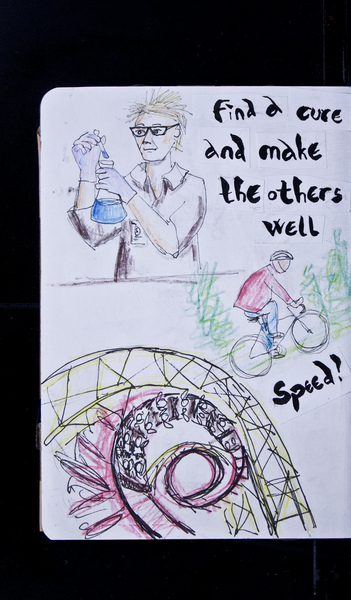 Find a cure
and make
the others
well
Speed!